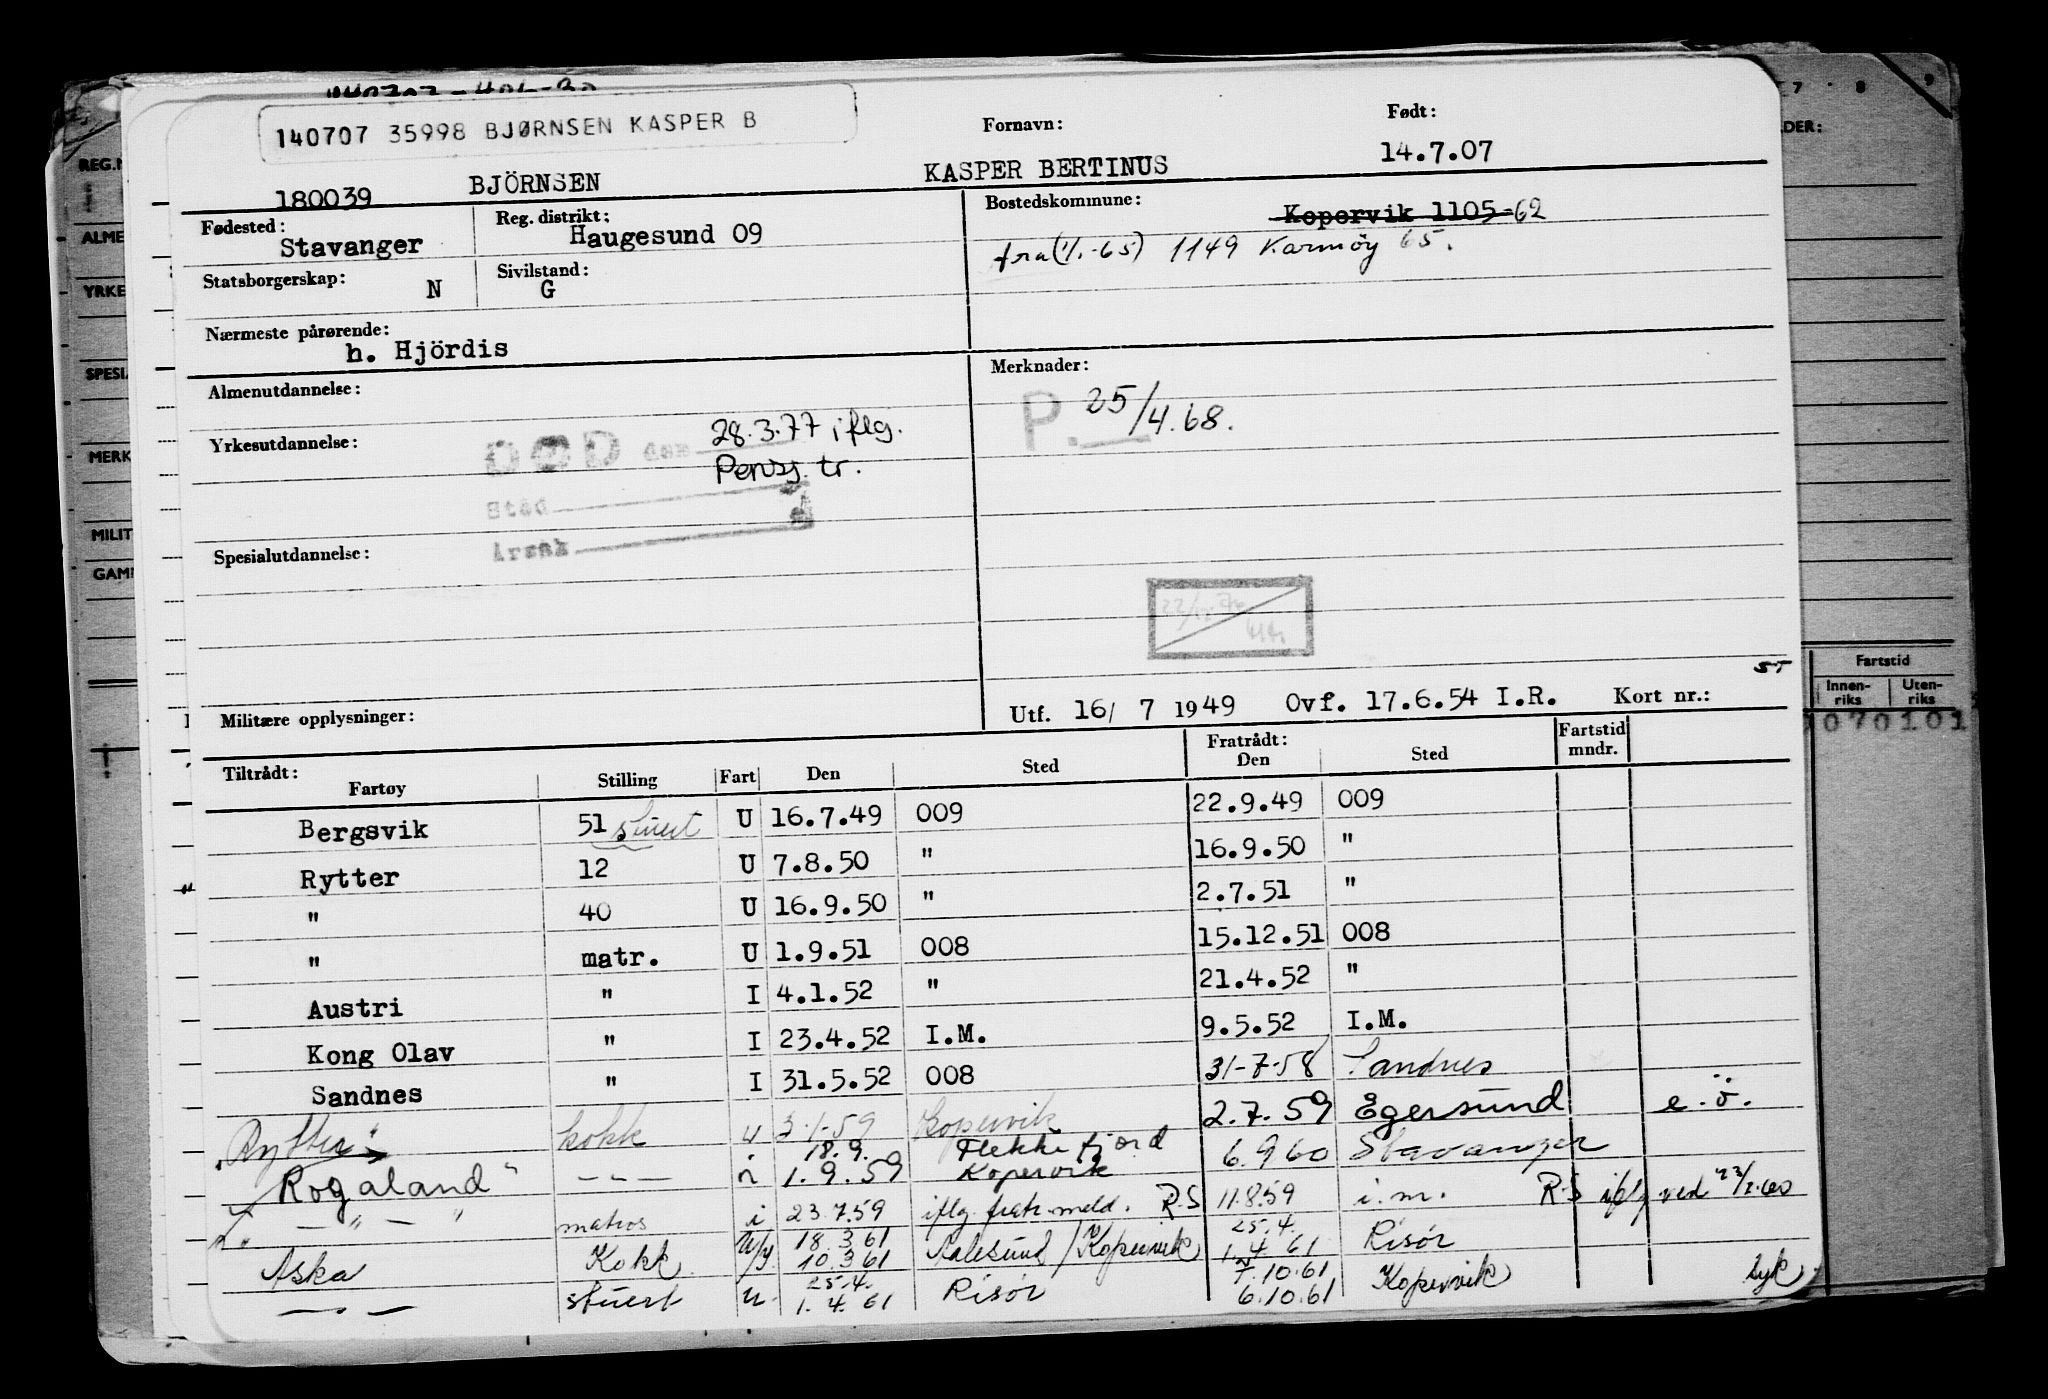 140707 35998 BJØRNSEN KASPER B
Fornavn: Født:
180039 BJÖRNSEN KASPER BERTINUS 14.7.07
Fødested: Stavanger
Reg. distrikt: Haugesund 09
Bostedskommune: Kopervik 1105-62
fra (1/1.-65) 1149 Karmöy 65.
Statsborgerskap: N
Sivilstand: G
Nærmeste pårørende: h. Hjördis
Almenutdannelse:
Merknader:
P. 25/4.68.
Yrkesutdannelse:
DØD den 28.3.77 iflg.
Pensj. tr.
Sted
Årsak
Spesialutdannelse:
Militære opplysninger:
Utf. 16/ 7 1949 Ovf. 17.6.54 I.R. Kort nr.:
ST
Tiltrådt: Fratrådt: Fartstid mndr.
Fartøy Stilling Fart Den Sted Den Sted
Bergsvik 51 stuert U 16.7.49 009 22.9.49 009
Rytter 12 U 7.8.50 " 16.9.50 "
" 40 U 16.9.50 " 2.7.51 "
" matr. U 1.9.51 008 15.12.51 008
Austri " I 4.1.52 " 21.4.52 "
Kong Olav " I 23.4.52 I.M. 9.5.52 I.M.
Sandnes " I 31.5.52 008 31-7-58 Sandnes
"Rytter" kokk u 3-1-59 Kopervik 2.7.59 Egersund e.ö.
"Rogaland" — — — i 18.9. 1.9.59 Flekkefjord Kopervik 6.9.60 Stavanger
— " — " matros i 23.7.59 iflg. fratr. meld. R-S 11.8.59 i.m. R-S iflg ved
Aska Kokk 18.3.61 10.3.61 Aalesund/Kopervik 25.4. 1.4.61 Risør
— " — stuert u. 25.4. 1.4.61 Risør 7.10.61 6.10.61 Kopervik syk
REG.N
ALME
YRKE
SPESIA
MERK
MILIT
GAMM
7 8 9
DER:
Fartstid
Innen-riks Uten-riks
070101